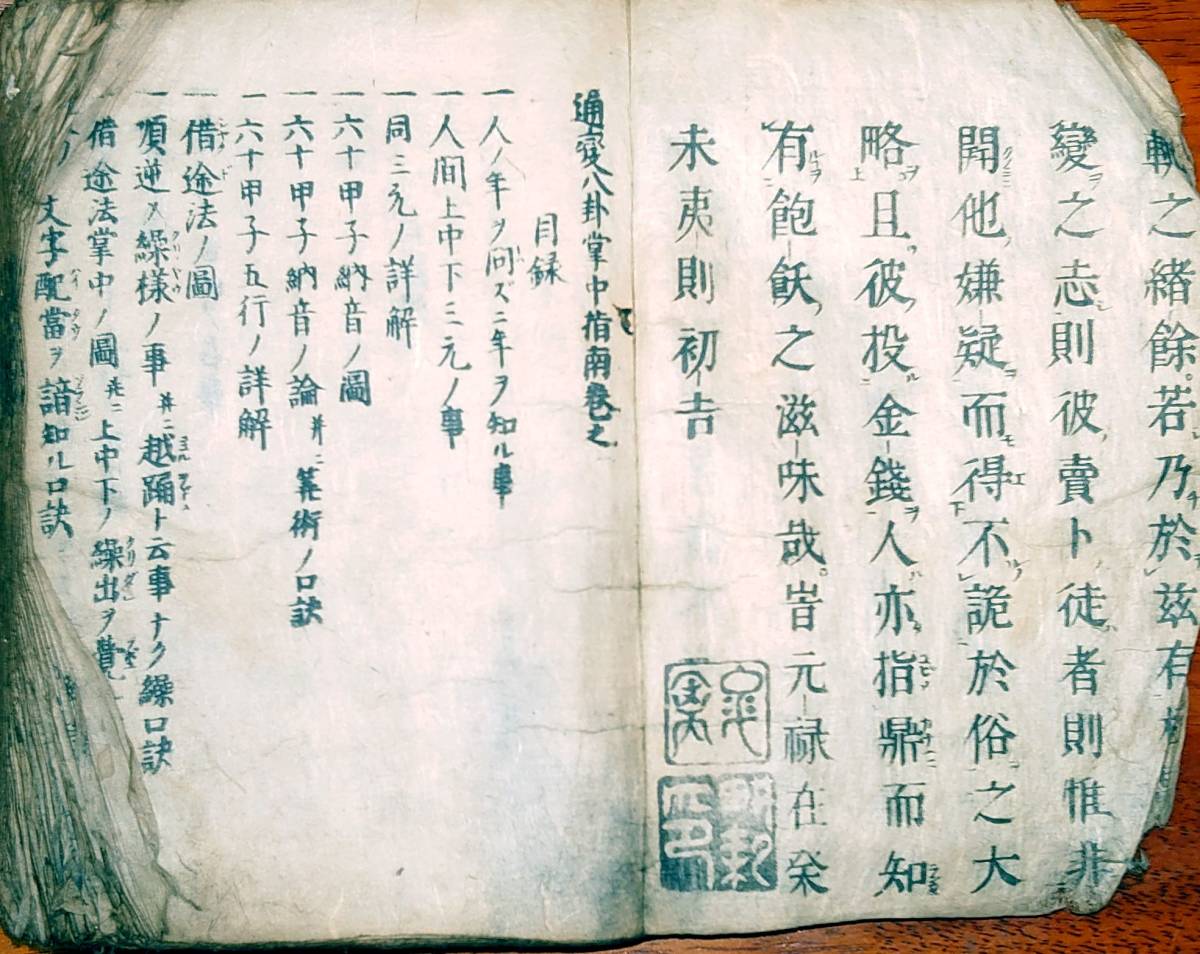 軌之緒餘若乃於茲有
變之志則彼賣卜徒者則惟非
開他嫌疑而得不詭於俗之大
略且彼投金錢人亦指鼎而知
有飽飫之滋味哉旹元禄在癸
未夷則初吉
通變八卦掌中指南巻之
目録
一人ノ年ヲ問ズニ年ヲ知ル事
一人間上中下三元ノ事
一同三元ノ詳解
一六十甲子納音ノ圖
一六十甲子納音ノ論 并ニ 筭術ノ口訣
一六十甲子五行ノ詳解
一借途法ノ圖
一順逆メ繰様ノ事 并ニ 越踊ト云事ナク繰口訣
借途法掌中ノ圖 并ニ 上中下ノ繰出ヲ
文字配當ヲ諳知ル口訣